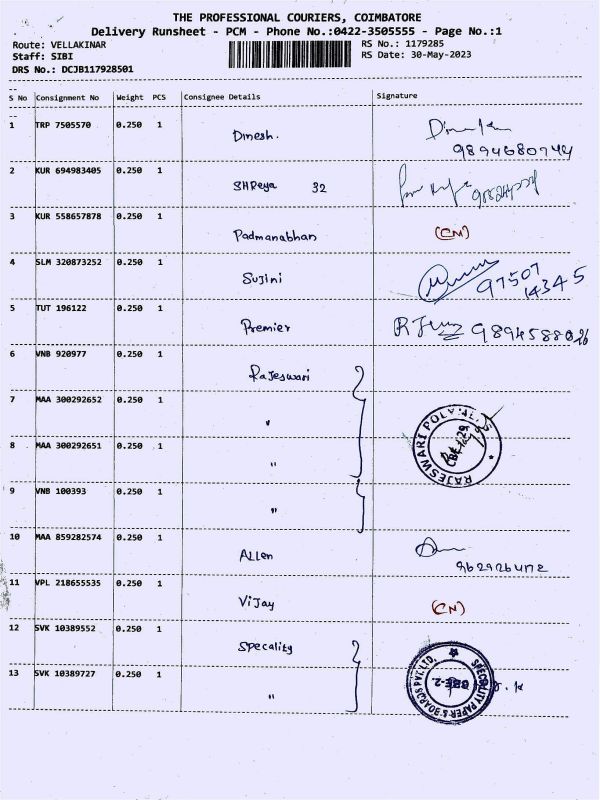 THE PROFESSIONAL COURIERS, COIMBATORE
Delivery Runsheet - PCM - Phone No.:0422-3505555 - Page No.:1
Route: VELLAKINAR
Staff: SIBI
DRS No.: DCJB117928501
RS No.: 1179285
RS Date: 30-May-2023
S No Consignment No Weight PCS Consignee Details Signature
1 TRP 7505570 0.250 1 Dinesh. 9894680744
2 KUR 694983405 0.250 1 SHReya 32
3 KUR 558657878 0.250 1 Padmanabhan (CN)
4 SLM 320873252 0.250 1 Sujini 97507 14345
5 TUT 196122 0.250 1 Premier
6 VNB 920977 0.250 1 Rajeswari
7 MAA 300292652 0.250 1 "
8 MAA 300292651 0.250 1 "
RAJESWARI
9 VNB 100393 0.250 1 "
10 MAA 859282574 0.250 1 Allen
11 VPL 218655535 0.250 1 Vijay (CN)
12 SVK 10389552 0.250 1 Specality
13 SVK 10389727 0.250 1 "
SPECIALITY PAPER & BOARDS PVT. LTD.
CBE-2